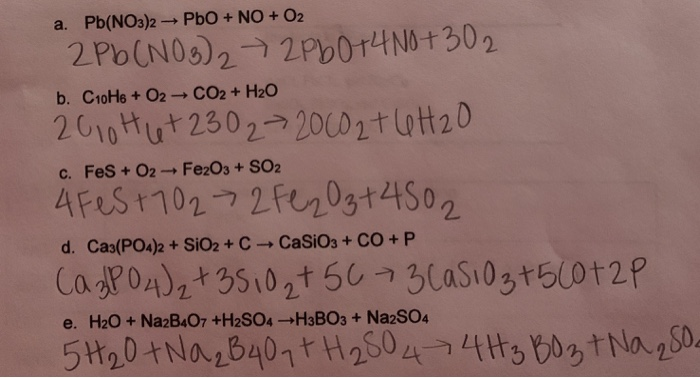 a. Pb(NO3)2 → PbO + NO + O2
2Pb(NO3)2 → 2PbO+4NO+3O2
b. C10H6 + O2 → CO2 + H2O
2C10H6+23O2→20CO2+6H2O
c. FeS + O2 → Fe2O3 + SO2
4FeS+7O2→2Fe2O3+4SO2
d. Ca3(PO4)2 + SiO2 + C → CaSiO3 + CO + P
Ca3(PO4)2+3SiO2+5C→3CaSiO3+5CO+2P
e. H2O + Na2B4O7 +H2SO4 →H3BO3 + Na2SO4
5H2O+Na2B4O7+H2SO4→4H3BO3+Na2SO4